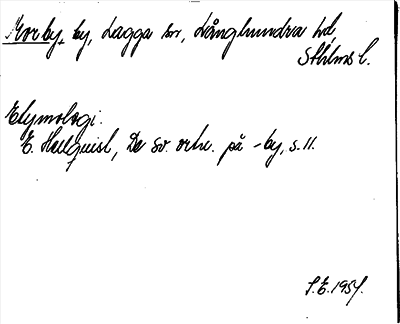 Morby, by, Lagga sn, Långhundra hd,
Sthlms l.
Etymologi:
E. Hellquist, De sv. ortn. på -by, s. 11.
S.E. 1954.